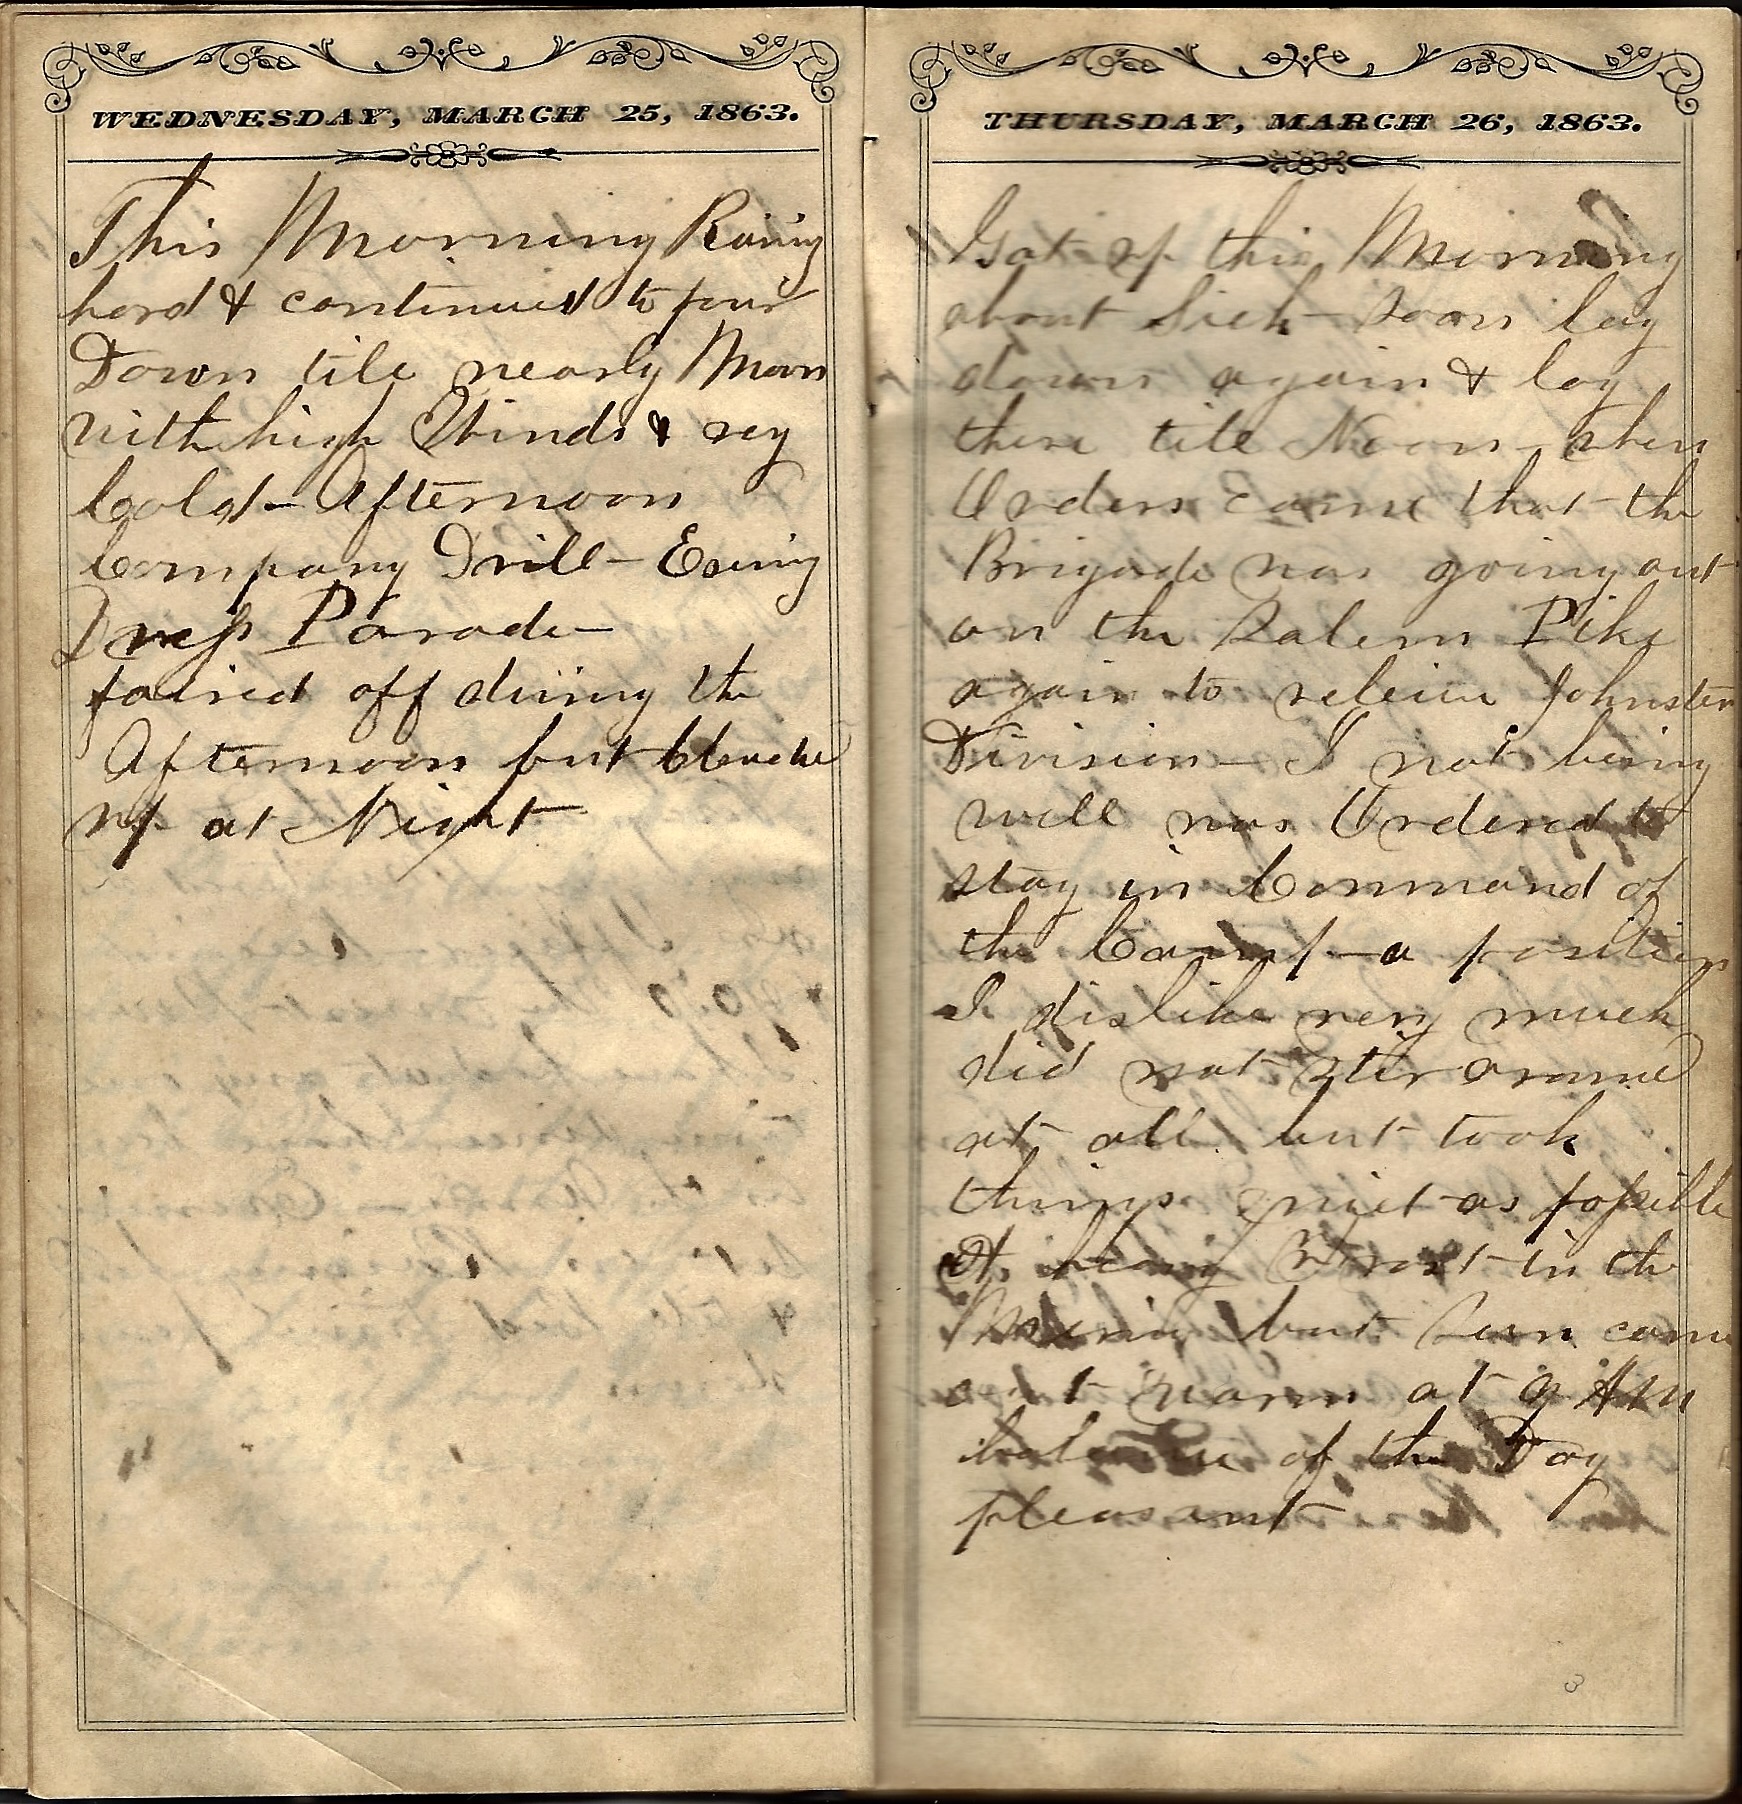 WEDNESDAY, MARCH 25, 1863.
This Morning Raing
hard & continued to pour
Down till nearly Noon
with high Winds & vey
Cold - Afternoon
Company Drill - Evening
Dress Parade -
faired off during the
Afternoon but
up at Night
THURSDAY, MARCH 26, 1863.
Got up this Morning
about Sick - Soon lay
down again & lay
there till Noon - when
Orders Came that the
Brigade was going out
on the Salem Pike
again to releive Johnston
Division - I not being
well was Ordered to
stay in Command of
the Camp - a position
I dislike very much
did not Stir around
at all but took
things quiet as possible
Frost in the
Morning but Sun came
out warm at 9 AM
balance of the Day
pleasant -
3